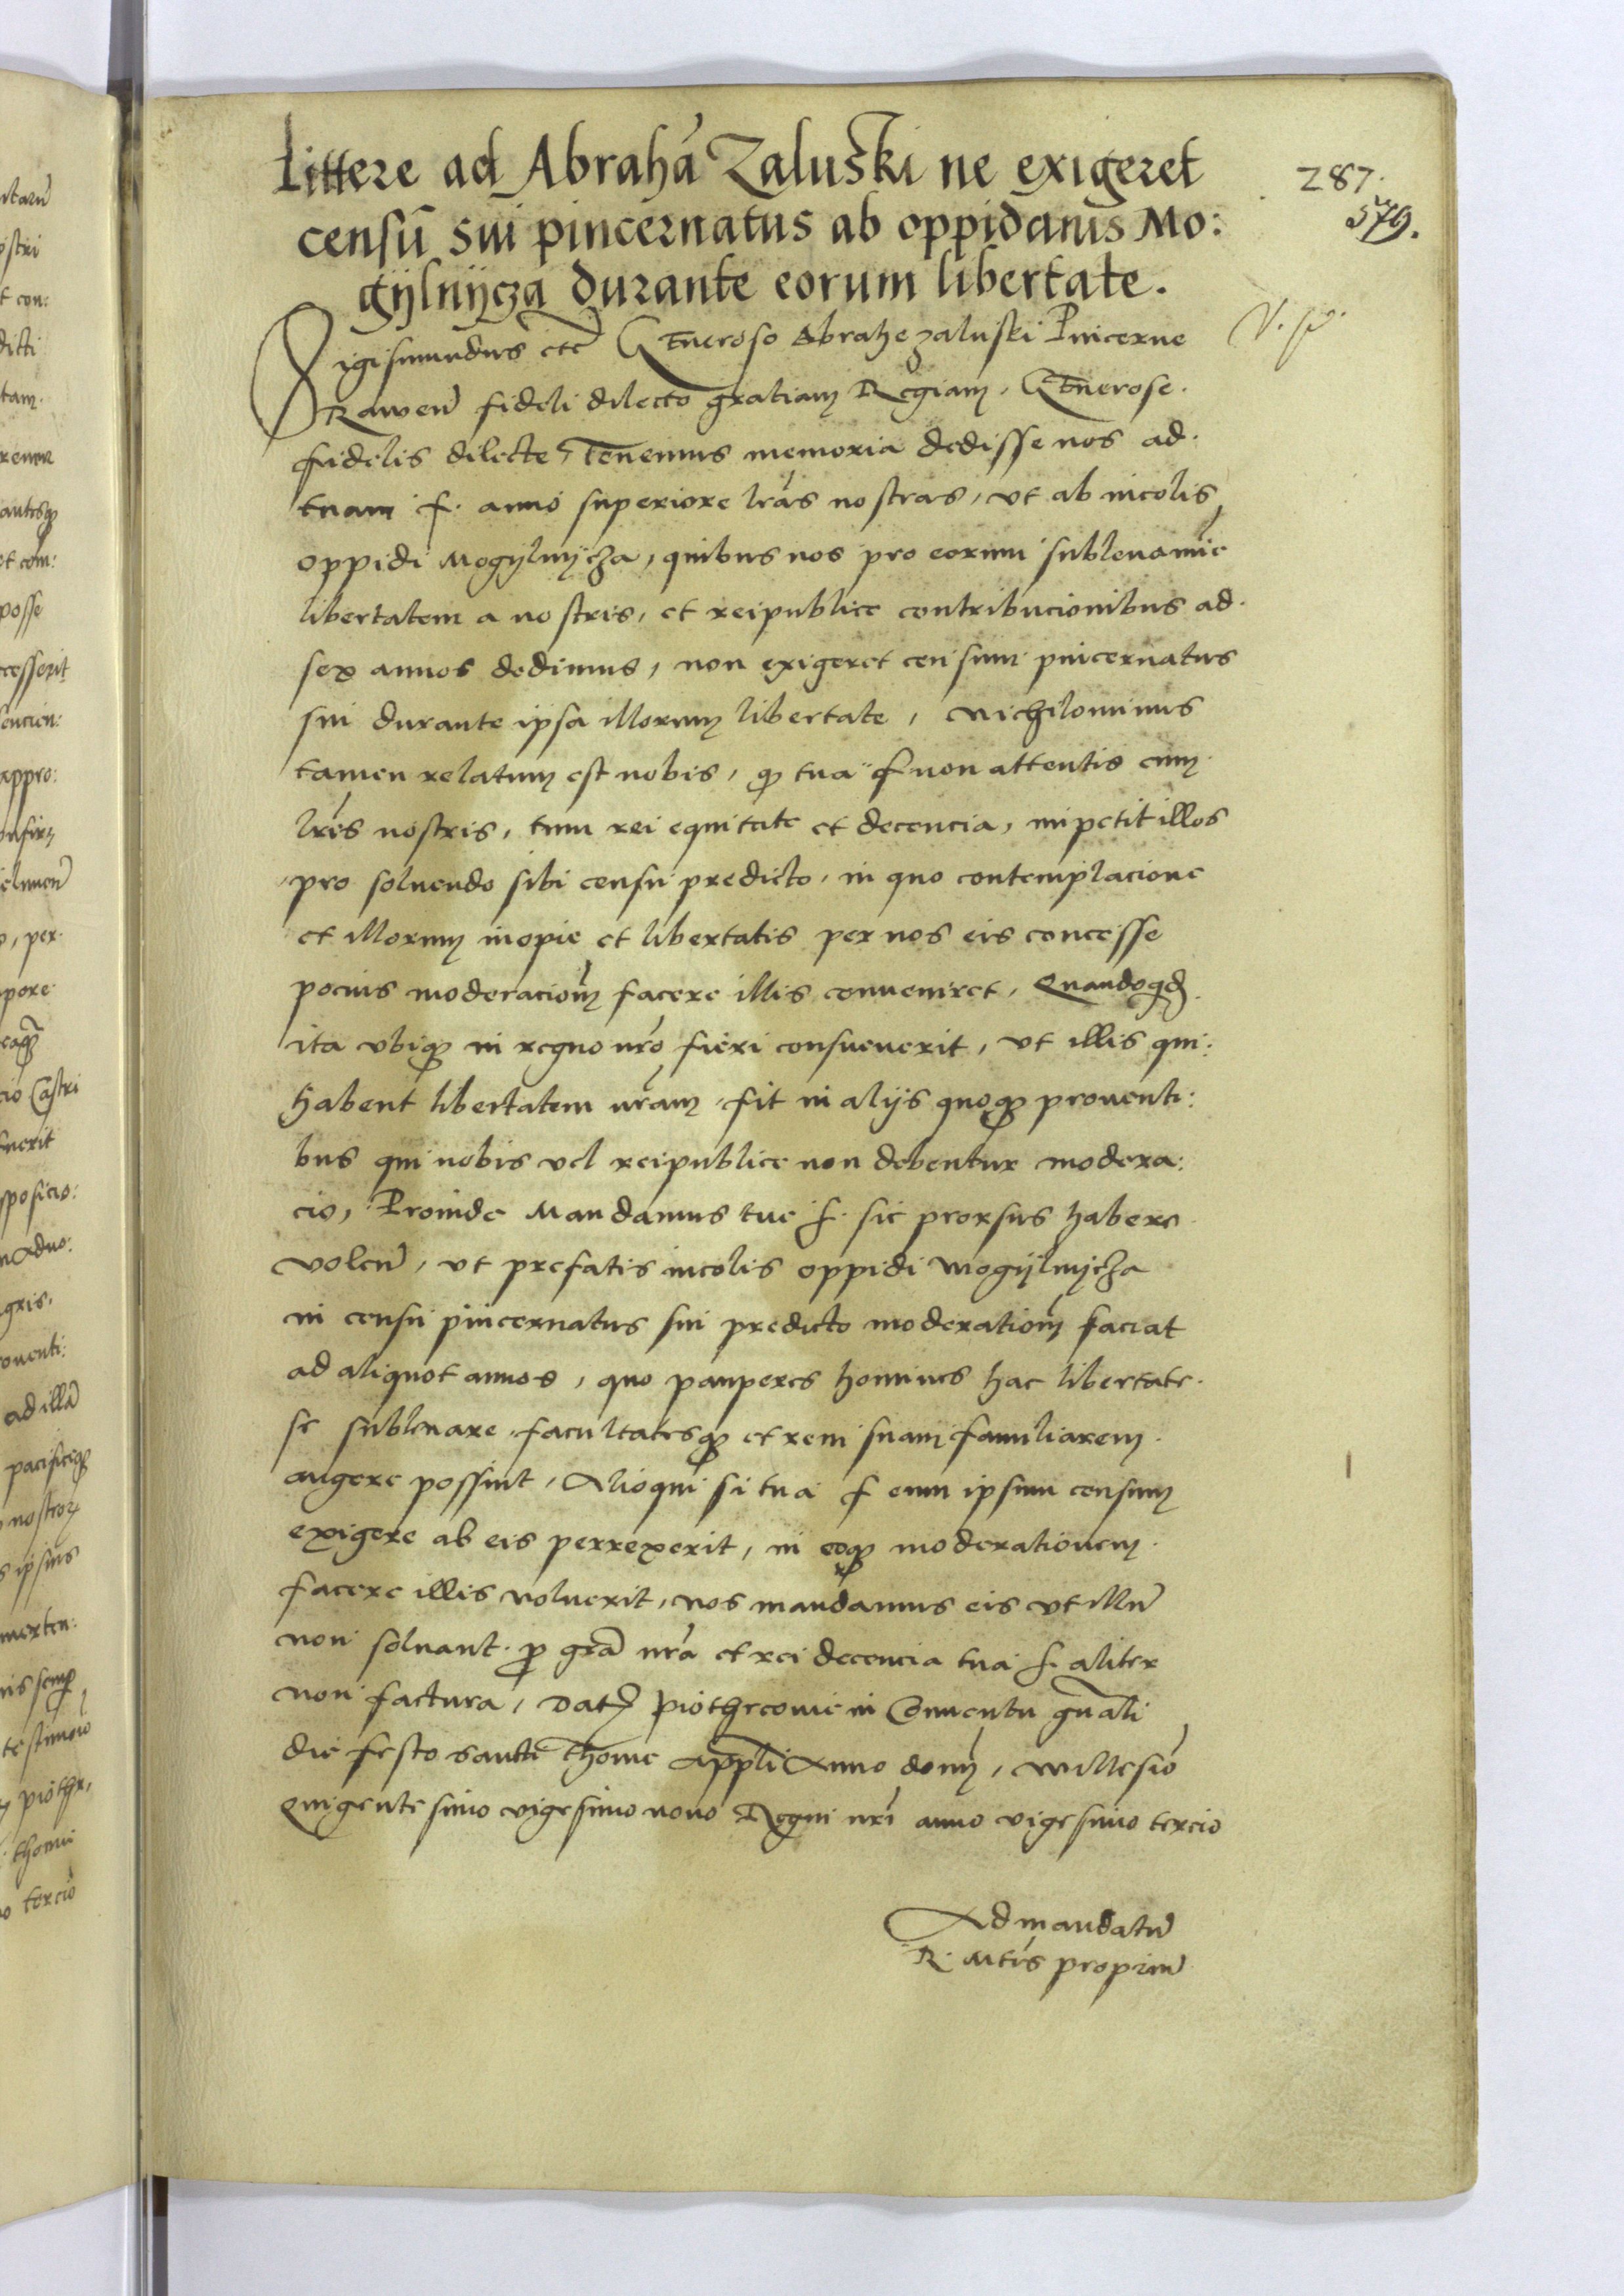 Littere ad Abrahã Zaluski ne exigeret
censũ sui pincernatus ab oppidanis Mo:
gÿlnÿcza durante eorum libertate.
287.
579.
Sigismundus etc̃ Generoso Abrahe zaluski Pincerne
Rawen̄ fideli dilecto gratiam Regiam, Generose.
fidelis dilecte, Tenemus memoria dedisse nos ad.
tuam f. anno superiore lr̃as nostras, vt ab incolis
oppidi Mogÿlnÿcza, quibus nos pro eorum subleuamīe
libertatem a nostris, et reipublice contribucionibus ad.
sex annos dedimus, non exigeret censum pincernatus
sui durante ipsa illorum libertate, Nichilominus
tamen relatum est nobis, qꝫ tua f non attentis cum
lr̃is nostris, tum rei equitate et decencia, impetit illos
pro soluendo sibi censu predicto, in quo contemplacione
et illorum inopie et libertatis per nos eis concesse
pocius moderacionē facere illis conueniret, Quandoqd
ita vbiqꝫ in regno nr̃o fieri consueuerit, vt illis qui:
habent libertatem nr̃am, fit in alijs quoqꝫ prouenti:
bus qui nobis vel reipublice non debentur modera:
cio, Proinde Mandamus tue f. sic prorsus habere
volen̄, vt prefatis incolis oppidi Mogÿlnÿcza
in censu pincernatus sui predicto moderationē faciat
ad aliquot annos, quo pauperes homines hac libertate.
se subleuare, facultatesqꝫ et rem suam familiarem.
augere possint, Alioqui si tua f eum ipsum censum
exigere ab eis perrexerit, in eoqꝫ moderationem.
facere illis noluerit, nos mandamus eis vt illū
non soluant. ꝓ gr̃a nr̃a et rei decencia tua f. aliter
non factura, Datꝫ Piothrcouie in Conuentu gn̄ali
die festo sancti Thome appl̄i Anno domī, Millesīo
Quigentesimo vigesimo nono Regni nr̃i anno vigesimo tercio
Ad mandatū
R. Mt̄is propriū